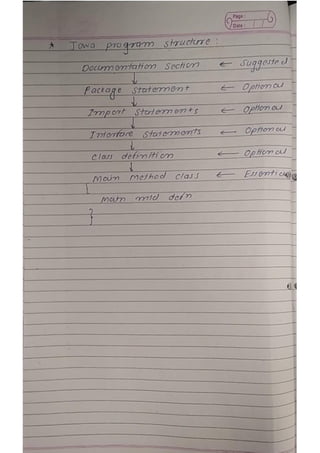 Page:
Date: / /
* Java program structure:
Documentation Section ← Suggested
↓
Package Statement ← Optional
↓
Import Statements ← Optional
↓
Interface Statements ← Optional
↓
class definition ← Optional
↓
Main Method class ← Essential
{
Main mtd defn
}